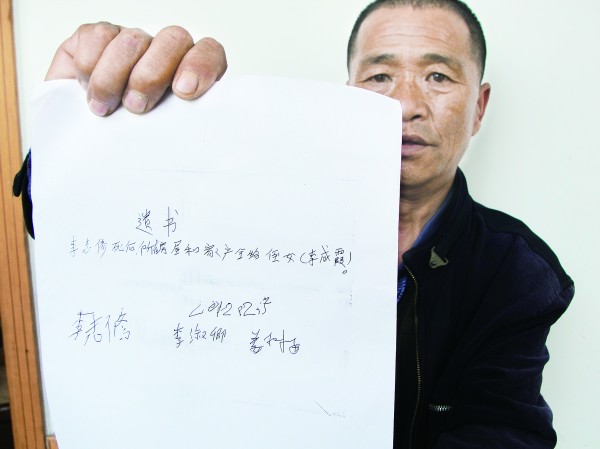 遗书
李志修死后,所有房屋和家产全给侄女(李成霞)。
2012.2.5
李志修 李淑卿 姜树